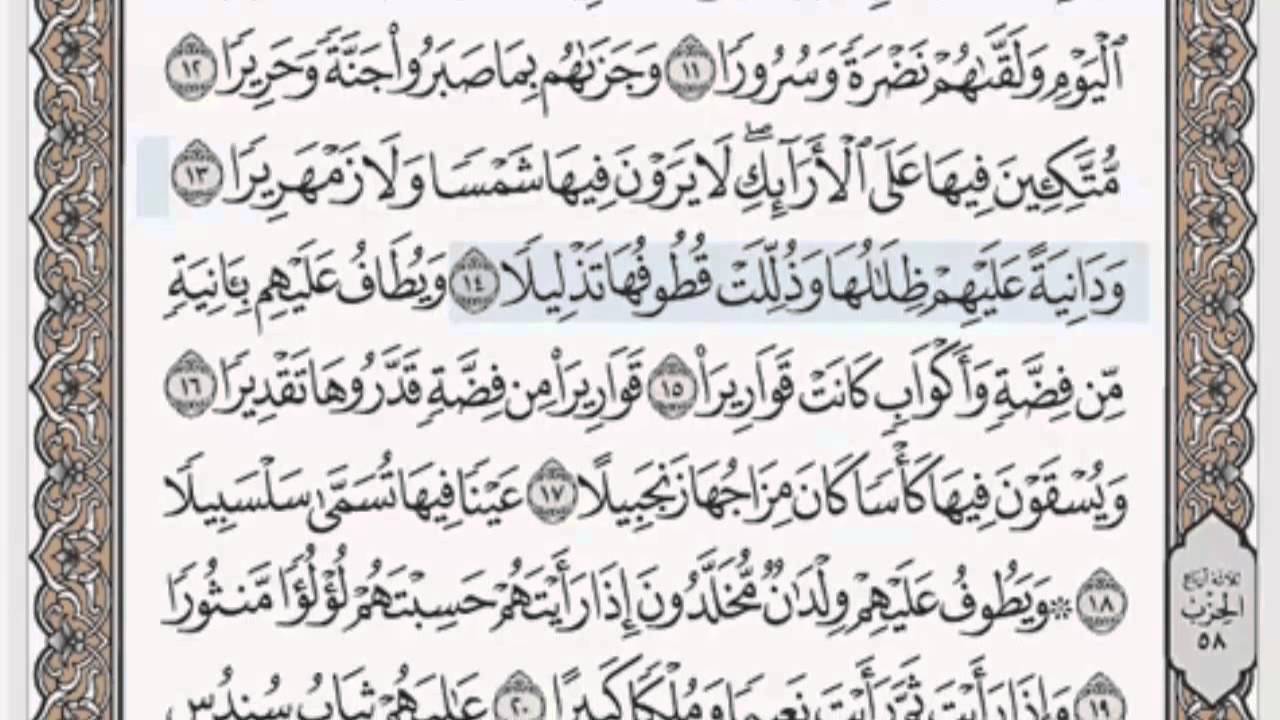 ٱلْيَوْمِ وَلَقَّىٰهُمْ نَضْرَةً وَسُرُورًا ١١ وَجَزَىٰهُم بِمَا صَبَرُوا۟ جَنَّةً وَحَرِيرًا ١٢
مُّتَّكِـِٔينَ فِيهَا عَلَى ٱلْأَرَآئِكِ ۖ لَا يَرَوْنَ فِيهَا شَمْسًا وَلَا زَمْهَرِيرًا ١٣
وَدَانِيَةً عَلَيْهِمْ ظِلَـٰلُهَا وَذُلِّلَتْ قُطُوفُهَا تَذْلِيلًا ١٤ وَيُطَافُ عَلَيْهِم بِـَٔانِيَةٍ
مِّن فِضَّةٍ وَأَكْوَابٍ كَانَتْ قَوَارِيرَا۠ ١٥ قَوَارِيرَا۟ مِن فِضَّةٍ قَدَّرُوهَا تَقْدِيرًا ١٦
وَيُسْقَوْنَ فِيهَا كَأْسًا كَانَ مِزَاجُهَا زَنجَبِيلًا ١٧ عَيْنًا فِيهَا تُسَمَّىٰ سَلْسَبِيلًا
١٨ ۞ وَيَطُوفُ عَلَيْهِمْ وِلْدَٰنٌ مُّخَلَّدُونَ إِذَا رَأَيْتَهُمْ حَسِبْتَهُمْ لُؤْلُؤًا مَّنثُورًا
١٩ وَإِذَا رَأَيْتَ ثَمَّ رَأَيْتَ نَعِيمًا وَمُلْكًا كَبِيرًا ٢٠ عَـٰلِيَهُمْ ثِيَابُ سُندُسٍ
ثلاثة أرباع
الحزب
٥٨